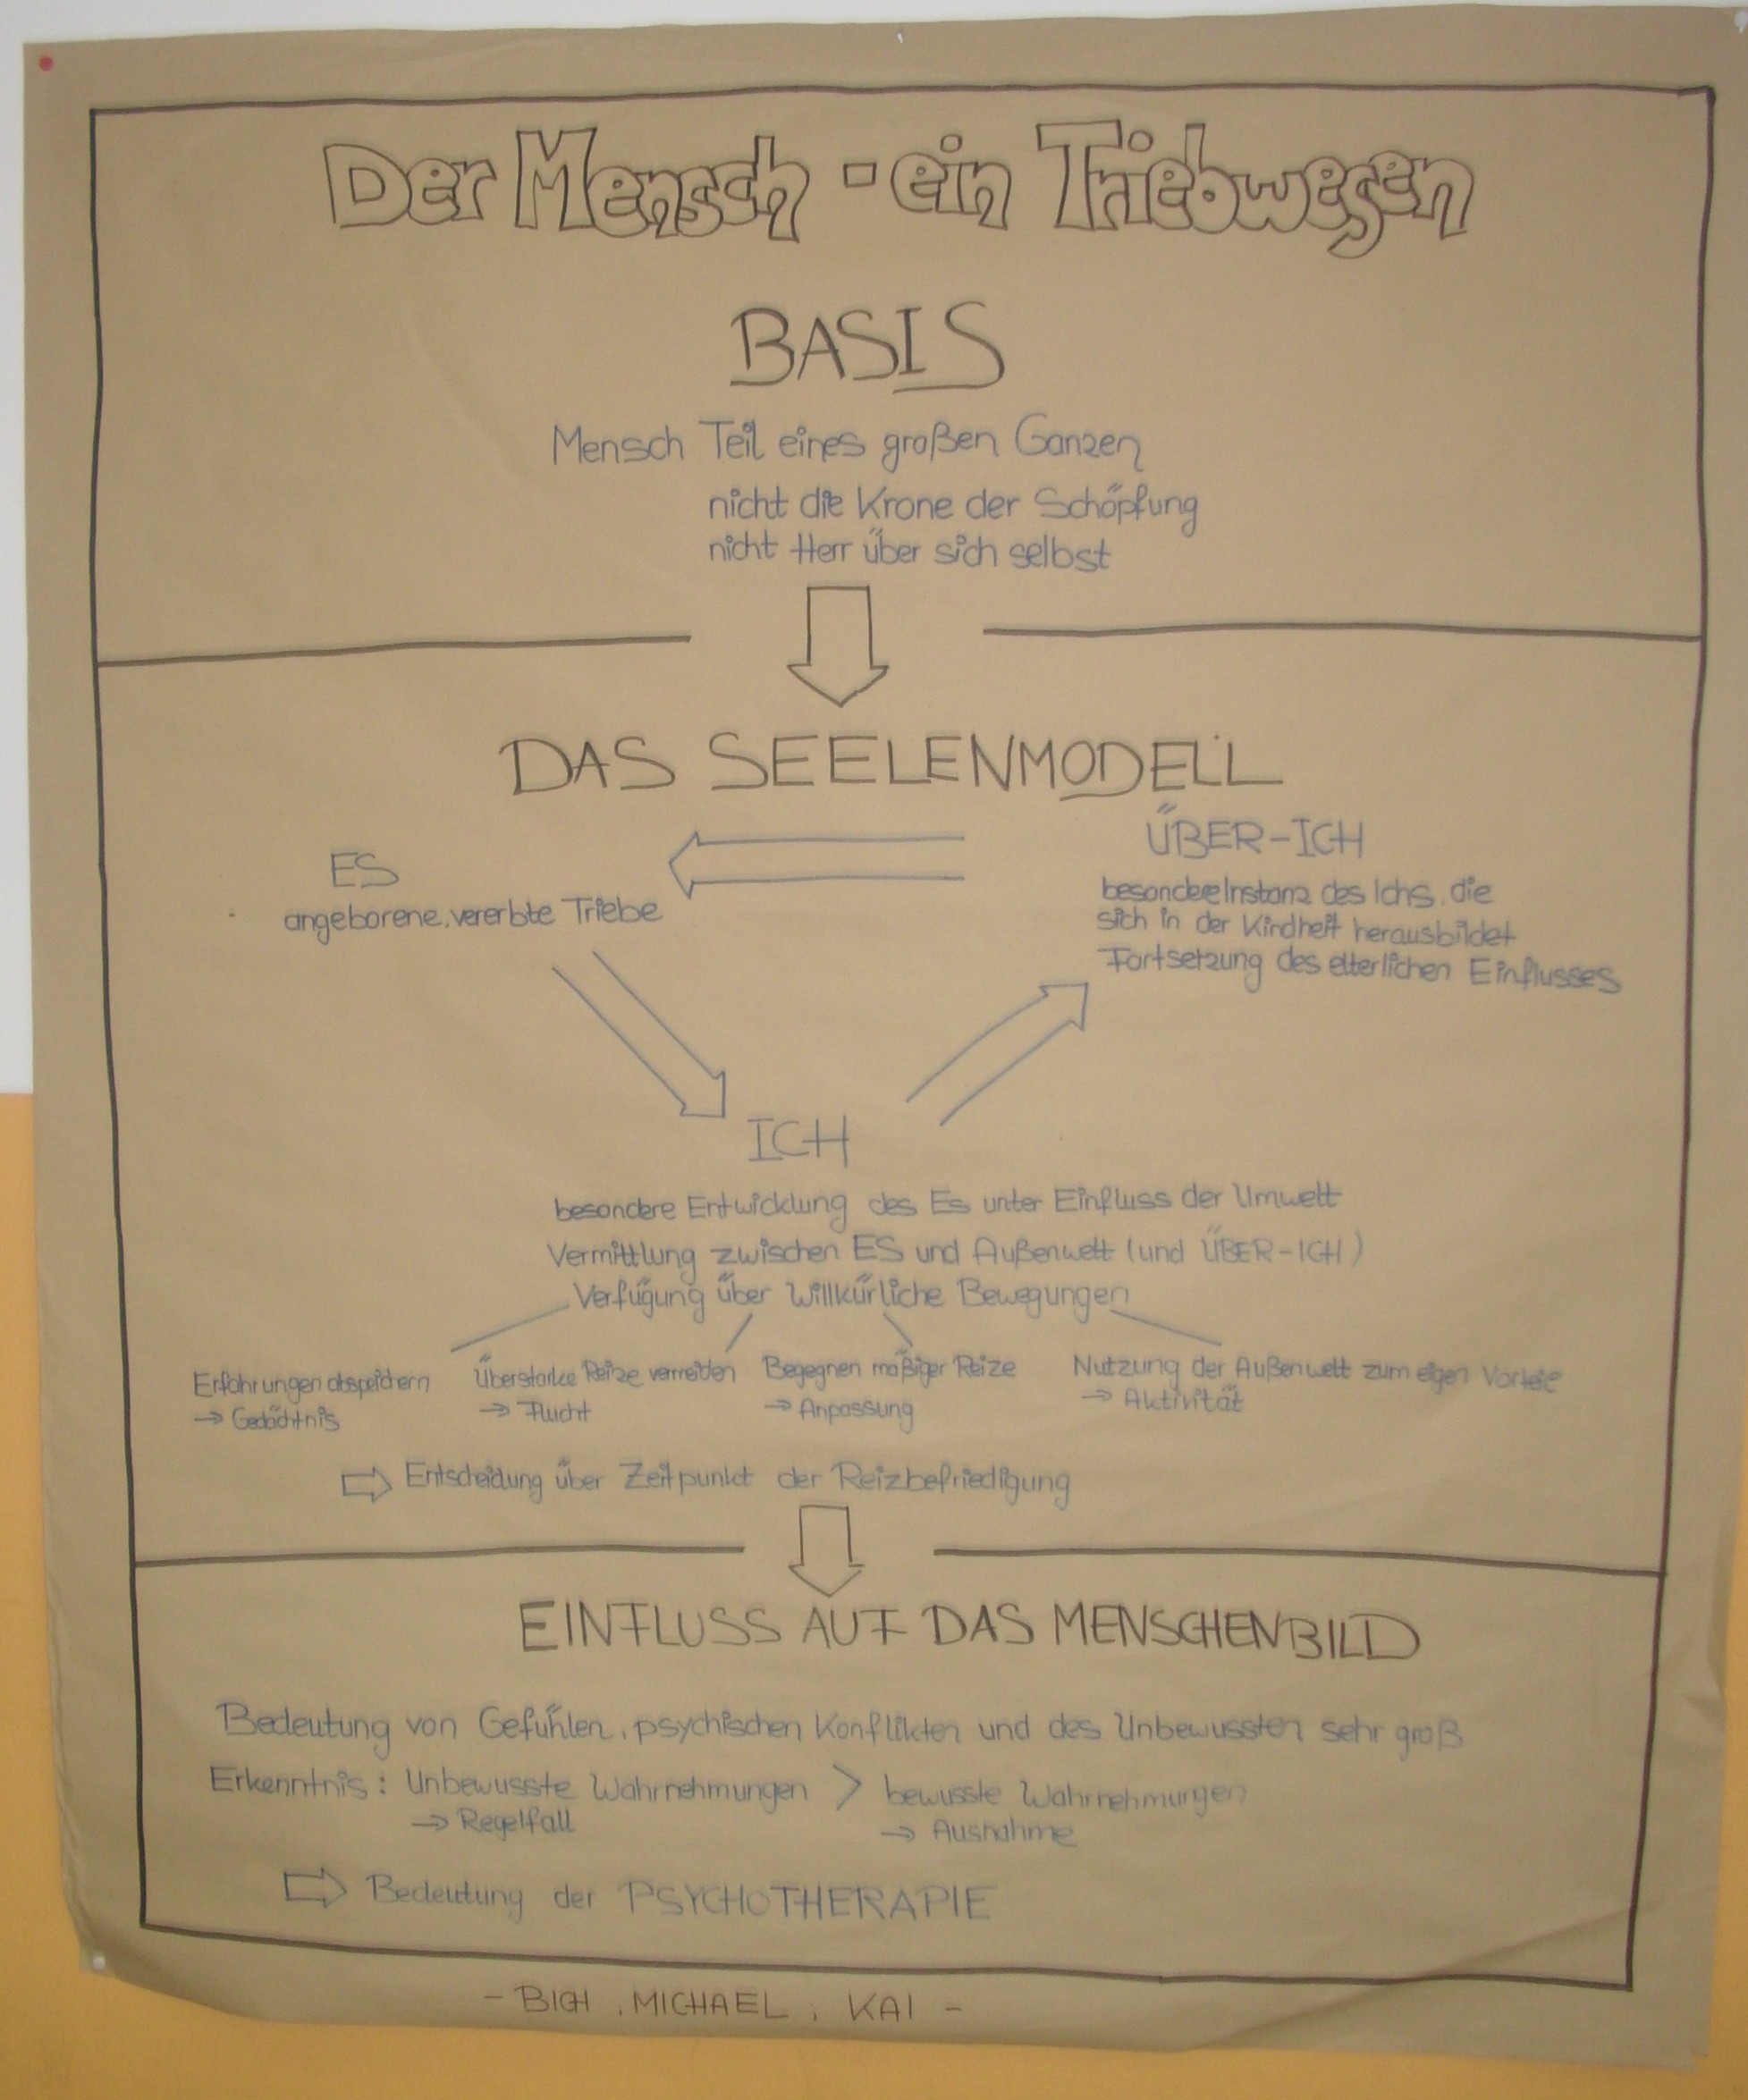 Der Mensch - ein Triebwesen
BASIS
Mensch Teil eines großen Ganzen
nicht die Krone der Schöpfung
nicht Herr über sich selbst
DAS SEELENMODELL
ES
angeborene, vererbte Triebe
ÜBER-ICH
besondere Instanz des Ichs, die
sich in der Kindheit herausbildet
Fortsetzung des elterlichen Einflusses
ICH
besondere Entwicklung des Es unter Einfluss der Umwelt
Vermittlung zwischen ES und Außenwelt (und ÜBER-ICH)
Verfügung über Willkürliche Bewegungen
Erfahrungen abspeichern
→ Gedächtnis
Überstarke Reize vermeiden
→ Flucht
Begegnen mäßiger Reize
→ Anpassung
Nutzung der Außenwelt zum eigen Vorteil
→ Aktivität
⇨ Entscheidung über Zeitpunkt der Reizbefriedigung
EINFLUSS AUF DAS MENSCHENBILD
Bedeutung von Gefühlen, psychischen Konflikten und des Unbewussten sehr groß
Erkenntnis: Unbewusste Wahrnehmungen > bewusste Wahrnehmungen
→ Regelfall → Ausnahme
⇨ Bedeutung der PSYCHOTHERAPIE
- BICH, MICHAEL, KAI -